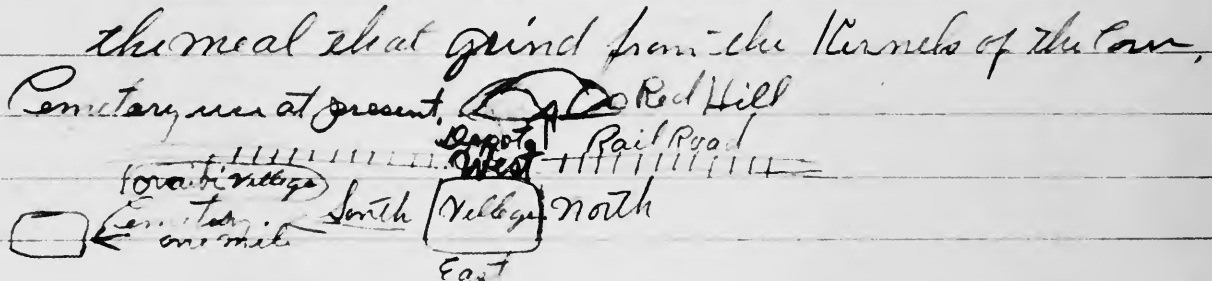 the meal that grind from the Kernels of the Corn,
Cemetary use at present. Red Hill
Depot Rail Road
West
(oraibi Village)
Cemetary South Village North
one mile
East